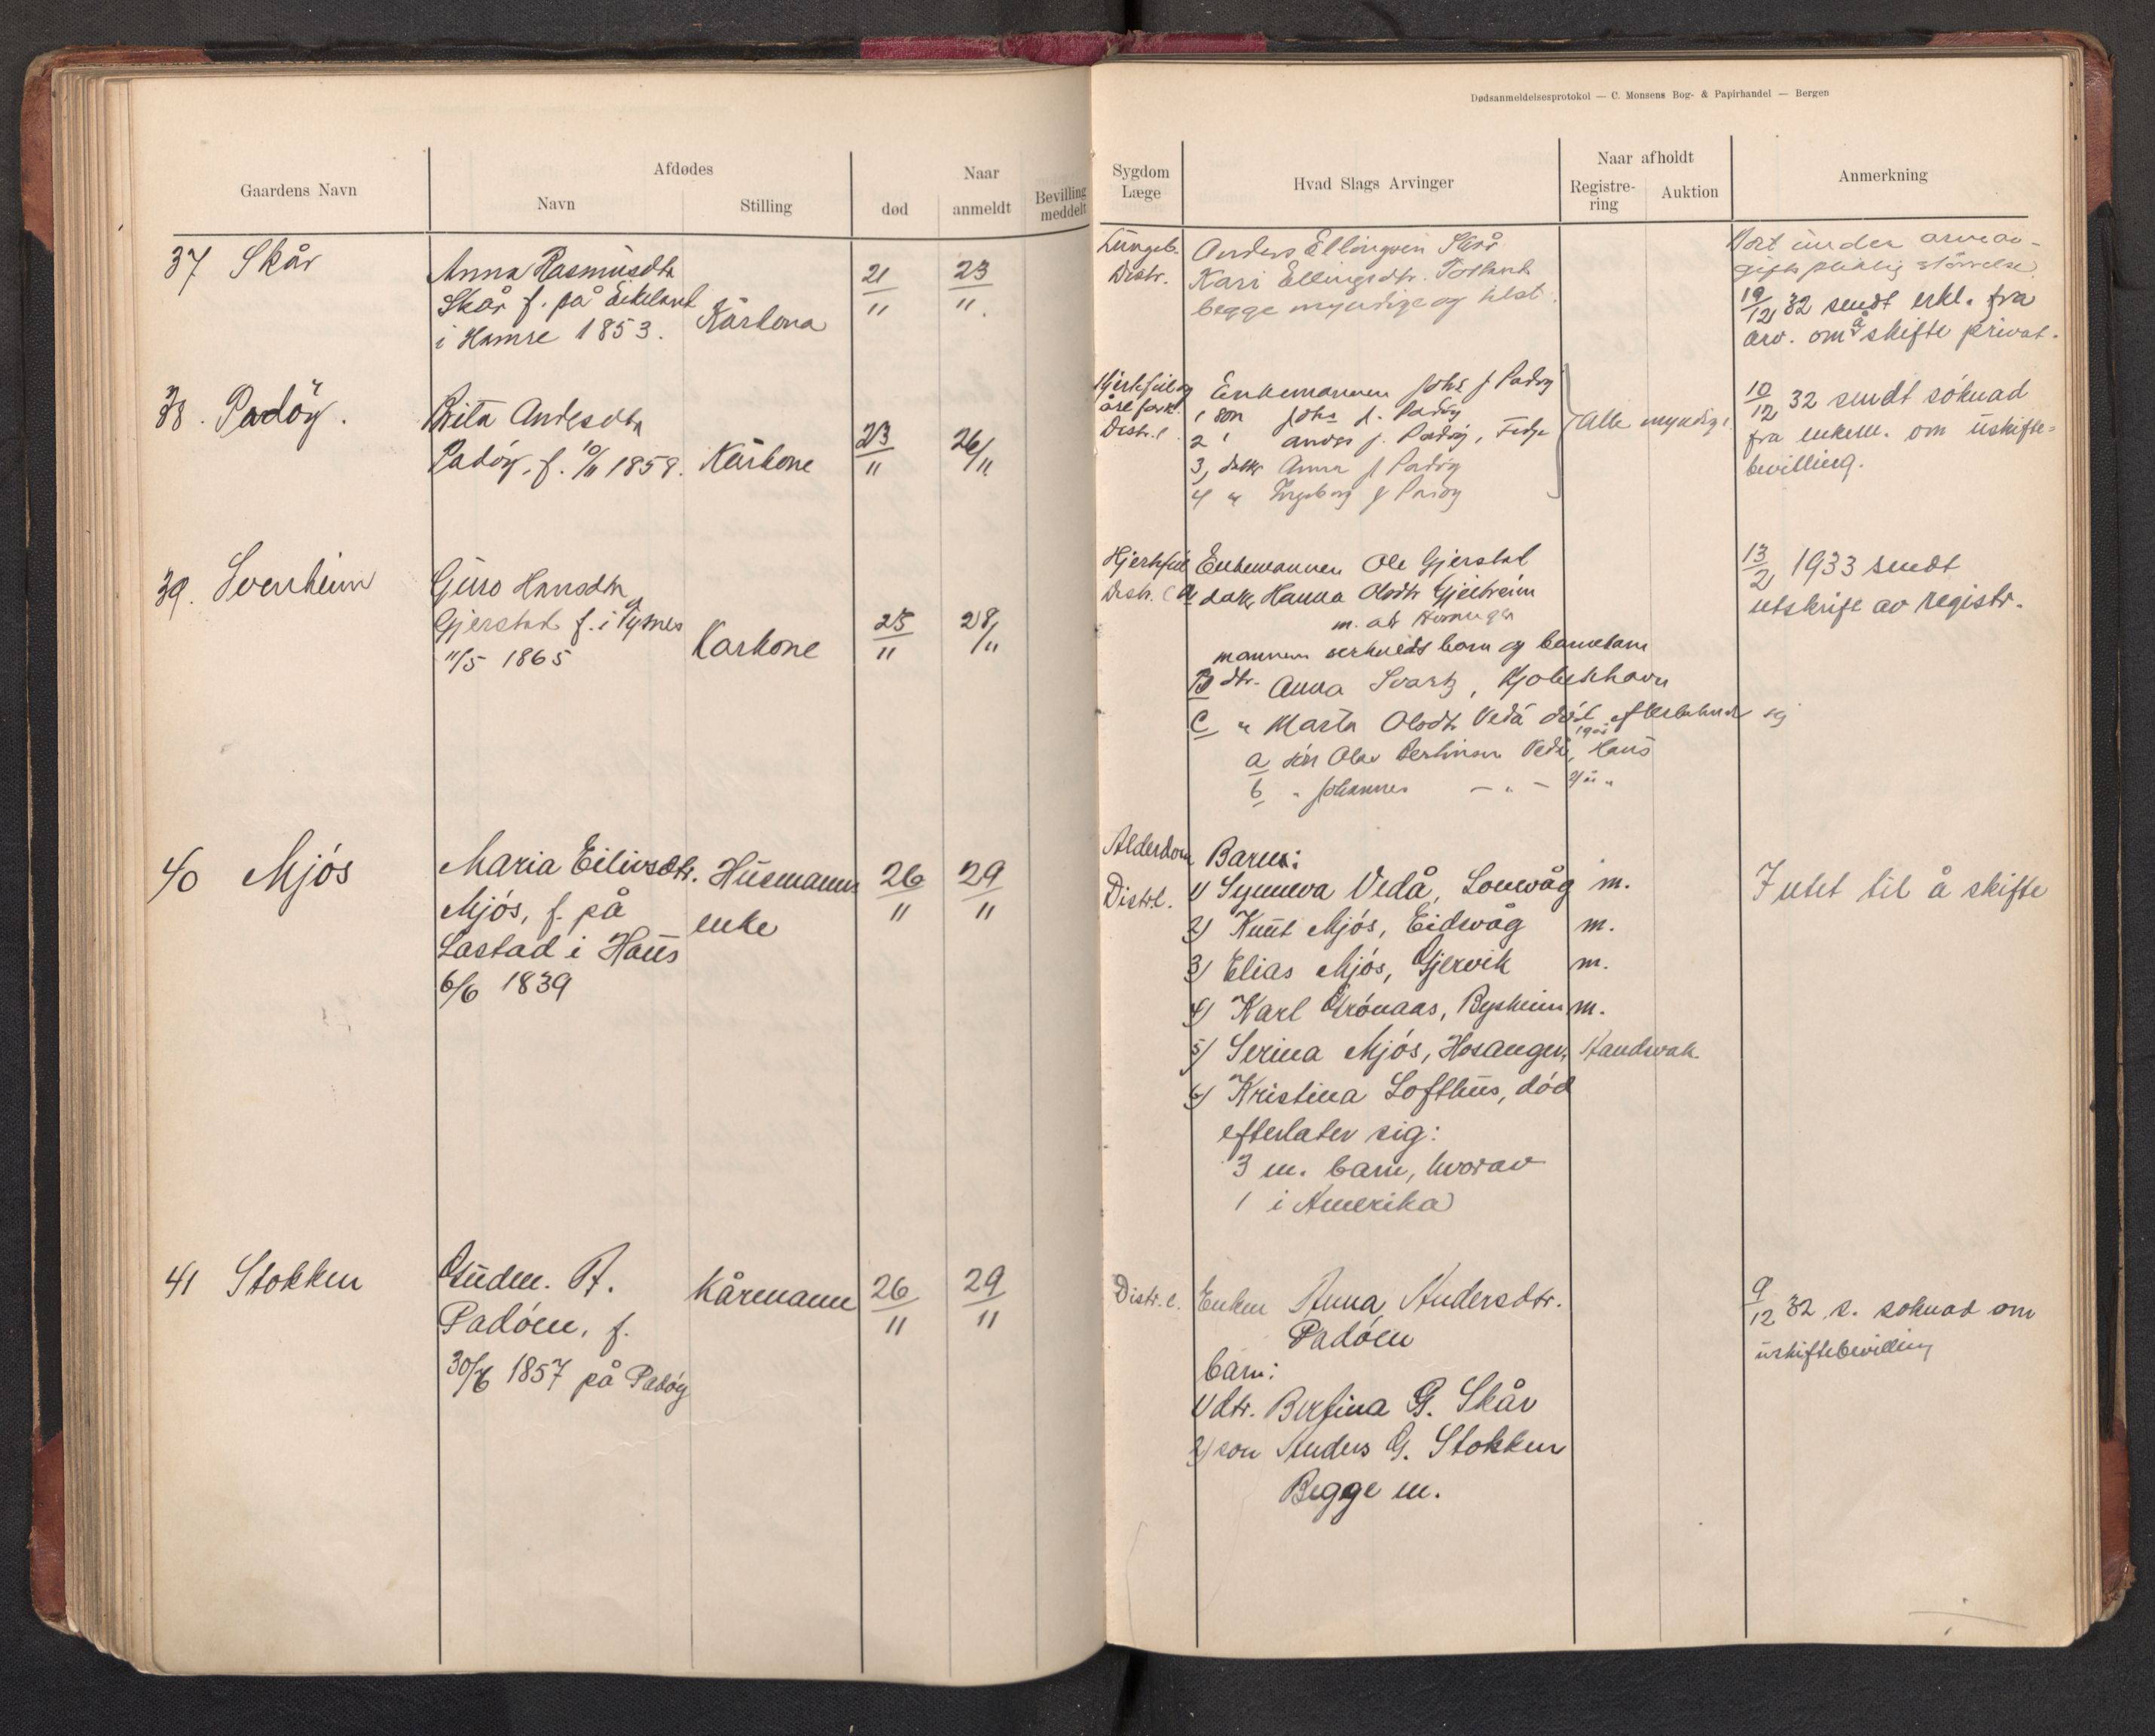 Dødsanmeldelsesprotokol — C. Monsens Bog- & Papirhandel — Bergen
Gaardens Navn
Afdødes
Navn
Stilling
Naar
død
anmeldt
Bevilling meddelt
Sygdom
Læge
Hvad Slags Arvinger
Naar afholdt
Registre-
ring
Auktion
Anmerkning
37 Skår
Anna Rasmusdtr
Skår f. på Eikeland
i Hamre 1853.
Kårkona
21/11
23/11.
Lungeb.
Distr.
Anders Ellingsen Skår
Kari Ellingsdtr.
begge myndige og tilst.
Bort under arveav-
gifts pliktig størrelse.
19/12 32 sendt erkl. fra
arv. om å skifte privat.
38. Padöy.
Brita Andersdtr
Padöy, f. 10/11 1858.
Kårkone
23/11
26/11
Distr.l.
Enkemannen Johs J Padöy
1 son Johs J. Padöy
2 " Anders J. Padöy, Fedje
3, datter Anna J Padöy
4 " Ingeborg J Padöy
Alle myndige
10/12 32 sendt söknad
fra enkem. om uskifte-
bevilling.
39. Svenheim
Guro Hansdtr
Gjerstad f. i Tysnes
11/5 1865
Karkone
25/11
28/11
Hjertefeil
Distr. l
Enkemannen Ole Gjerstad
A datr Hanna Olsdtr Gjeitreim
mannens serkulds barn og barnebarn
B dtr. Anna Svartz, Kjobenhavn
C " Marta Olsdtr Vedå död efterlatende sig
a sön Olav Bertinsen Vedå, Haus
b " Johannes — " — "
13/2 1933 sendt
utskrift av registr.
40 Mjós
Maria Eilivsdtr.
Mjós, f. på
Lastad i Haus
6/6 1839
Husmanns
enke
26/11
29/11
Alderdom
Distr.l.
Barn:
1) Synneva Vedå, Lonevåg m.
2) Knut Mjós, Eidsvåg m.
3) Elias Mjós, Gjervik m.
4) Karl Grónaas, Bysheim m.
5) Serina Mjós, Hosanger, Åandsvak
6) Kristina Lofthus, dód
efterlater sig:
3 m. barn, hvorav
1 i Amerika
Intet til å skifte
41 Stokken
Gudm. A.
Padóen, f.
30/6 1857 på Padóy
Kårmann
26/11
29/11
Distr. l.
Enken Anna Andersdtr.
Padóen
barn:
1) dtr. Bertina G. Skår
2) son Anders G. Stokken
Begge m.
9/12 32 s. soknad om
uskiftebevilling